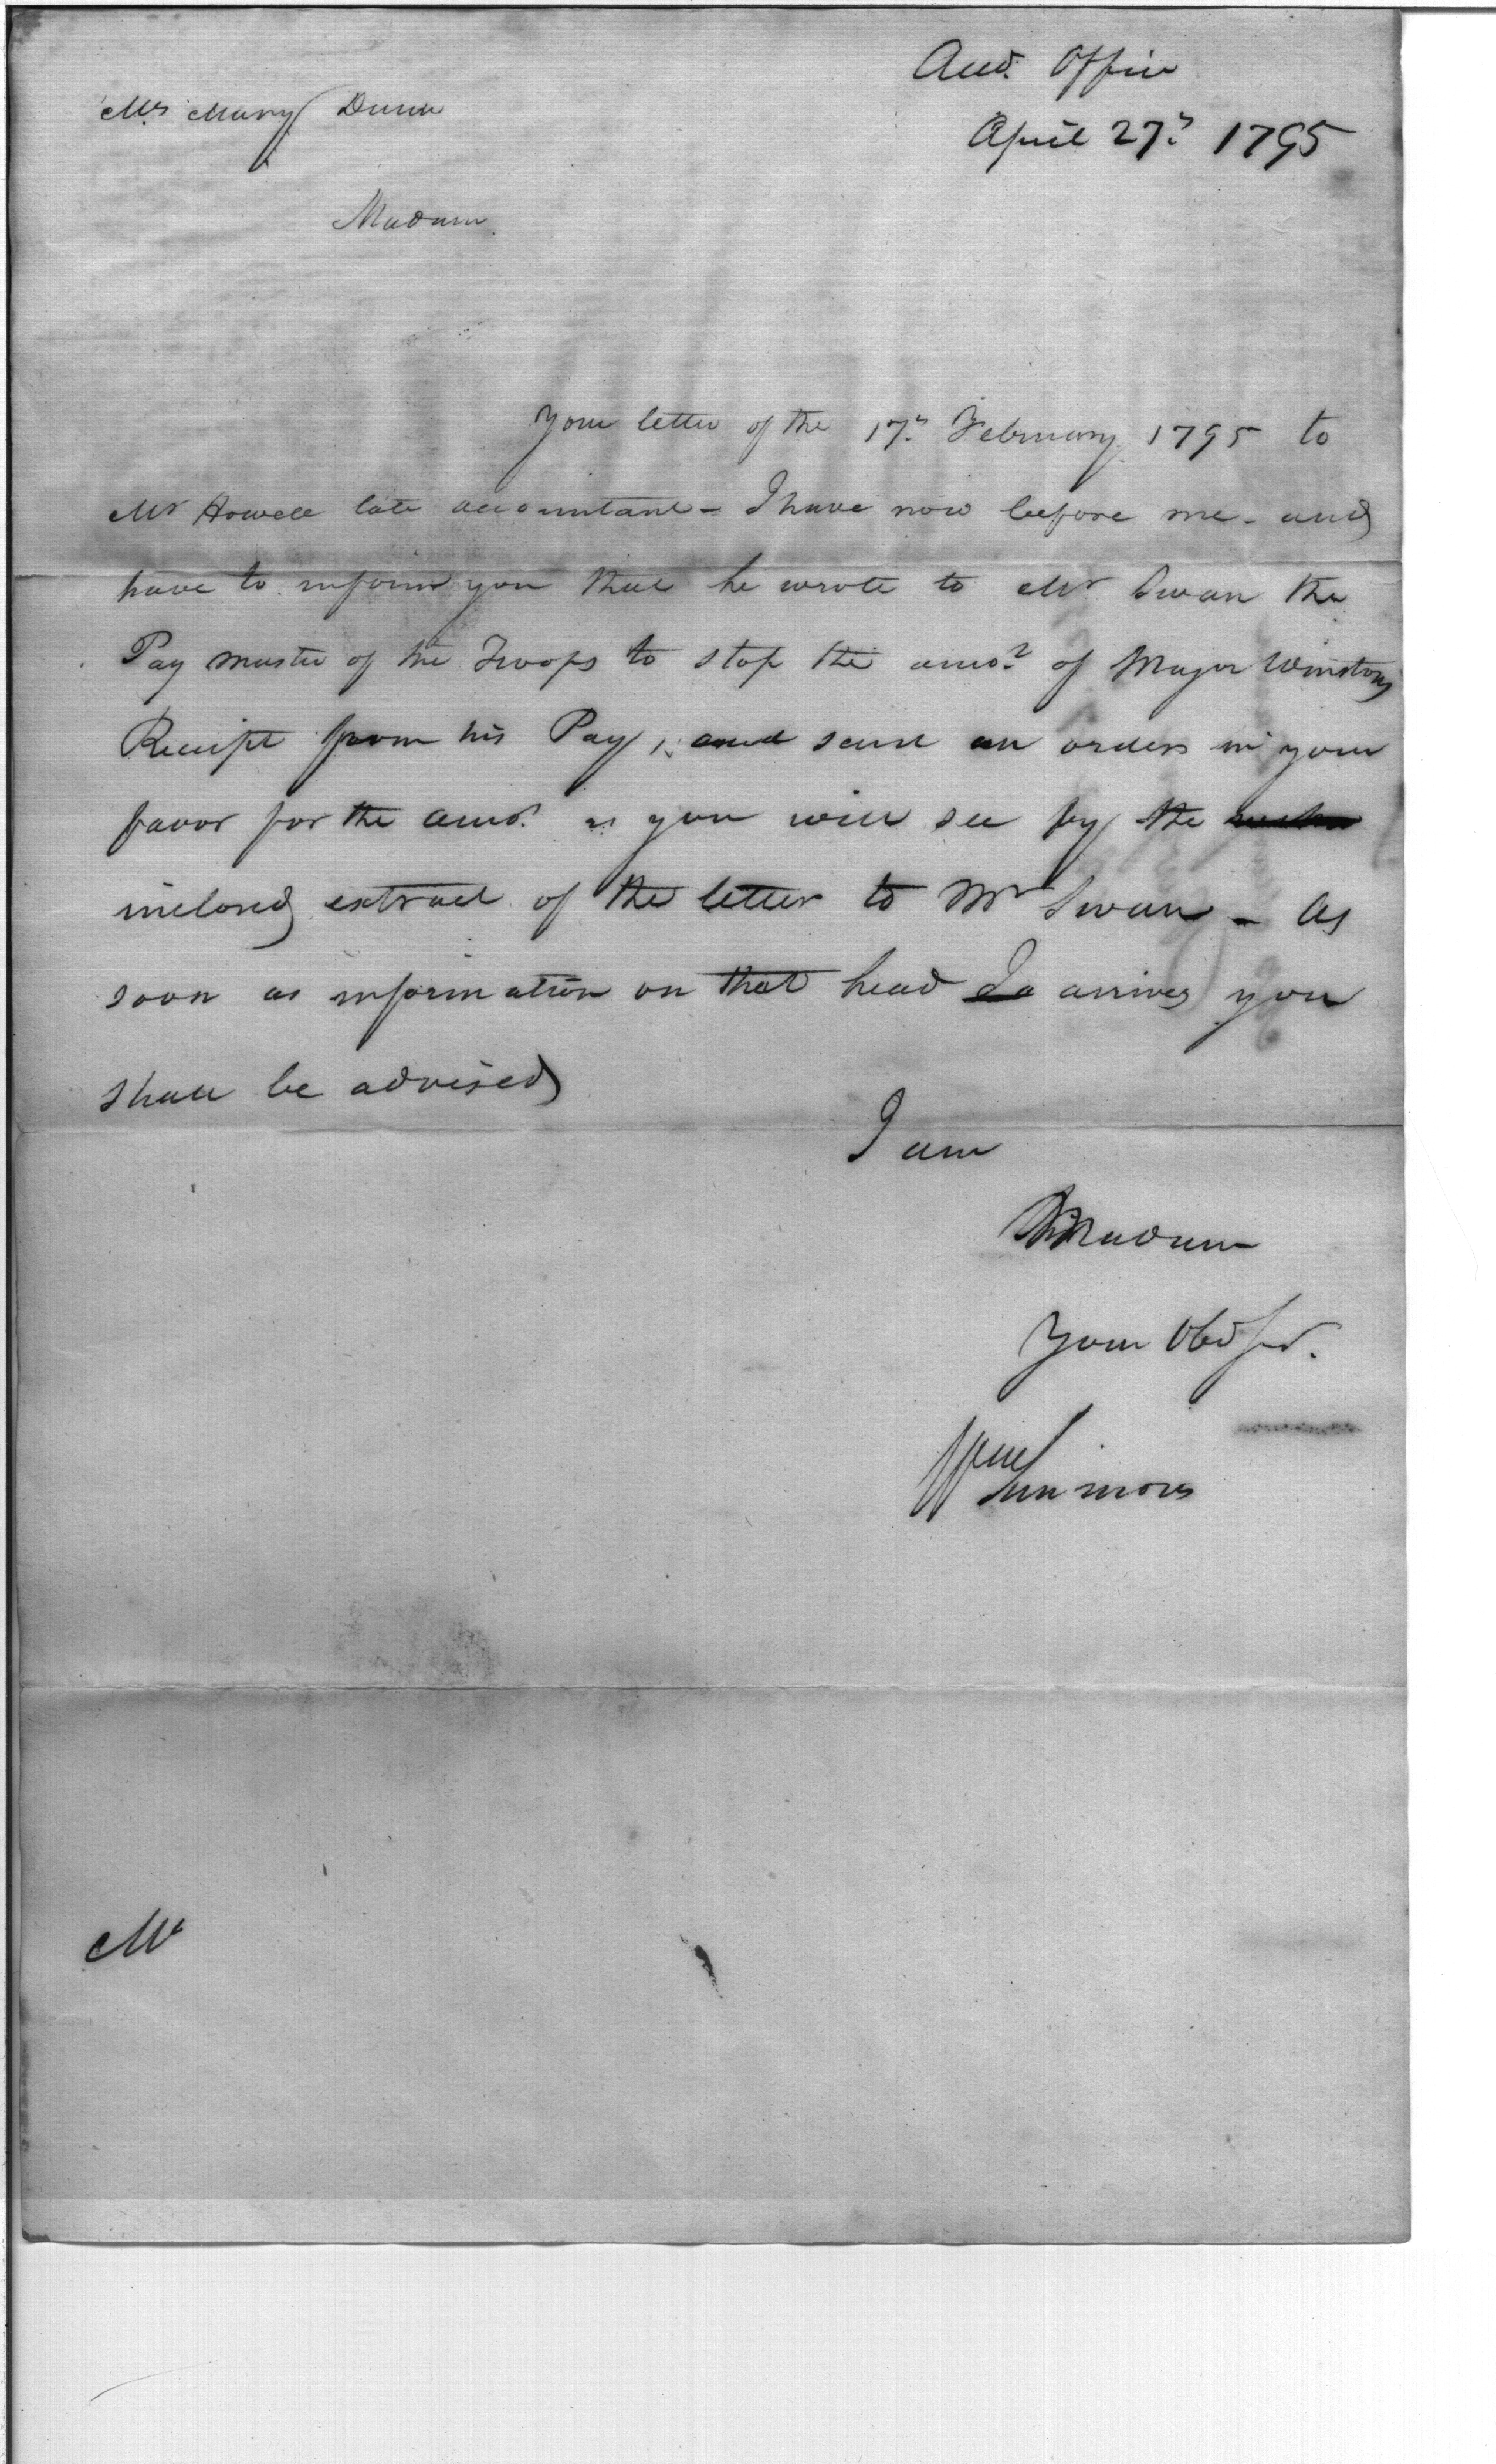 Acco. Office
April 27th 1795
Mrs Mary Dunn
Madam
Your letter of the 17th February 1795 to
Mr Howell late accountant - I have now before me - and
have to inform you that he wrote to Mr Swan the
Pay master of the Troops to stop the amot of Major Winstons
Receipt from his Pay, and send an orders in your
favor for the amot as you will see by the
inclosed extract of the letter to Mr Swan - As
soon as information on that head arrives you
shall be advised
I am
Madam
Your Obd Sevt.
Wm Simmons
Mr